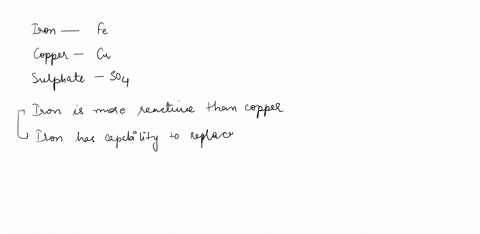 Iron — Fe
Copper — Cu
Sulphate — SO4
Iron is more reactive than copper
Iron has capability to replace